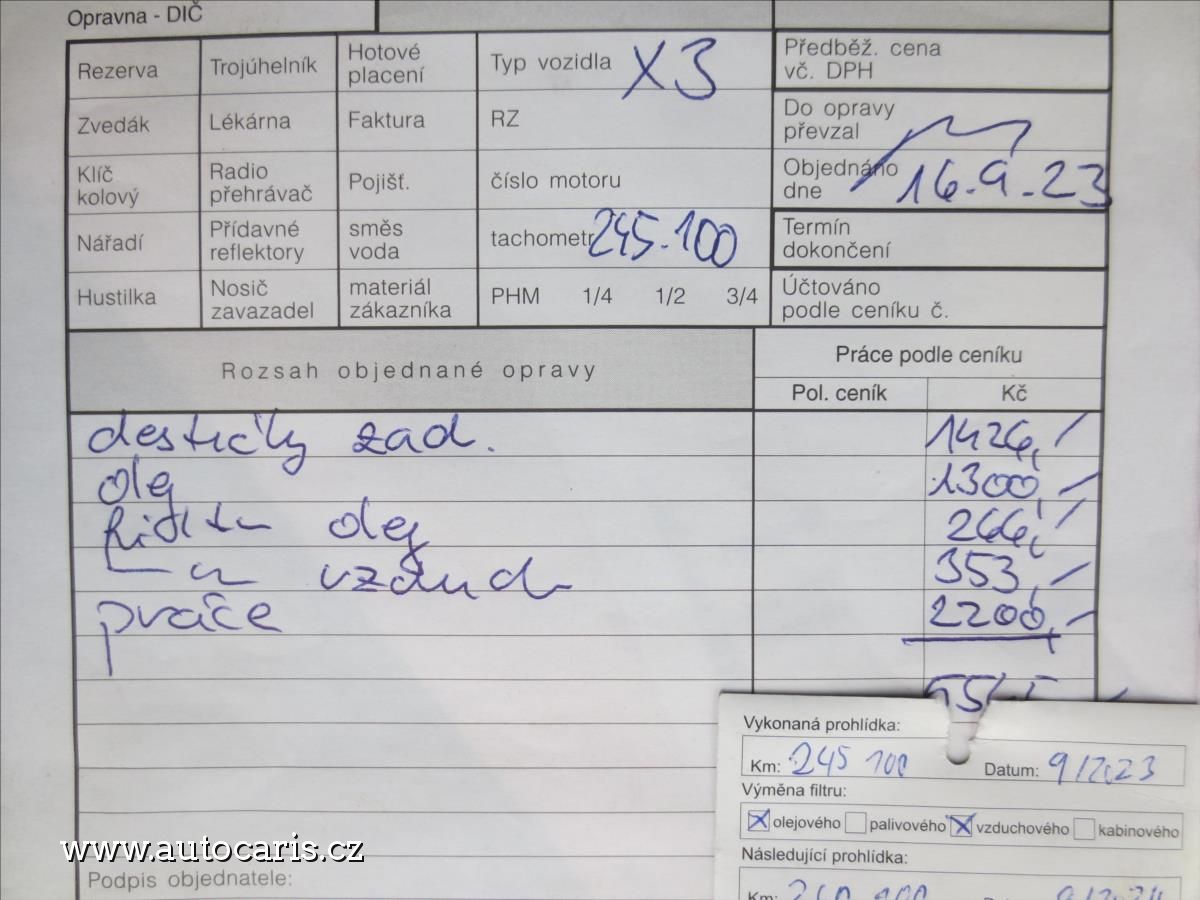 Opravna - DIČ
Rezerva Trojúhelník Hotové placení Typ vozidla X3 Předběž. cena vč. DPH
Zvedák Lékárna Faktura RZ Do opravy převzal
Klíč kolový Radio přehrávač Pojišť. číslo motoru Objednáno dne 16.9.23
Nářadí Přídavné reflektory směs voda tachometr 245.100 Termín dokončení
Hustilka Nosič zavazadel materiál zákazníka PHM 1/4 1/2 3/4 Účtováno podle ceníku č.
Rozsah objednané opravy Práce podle ceníku
Pol. ceník Kč
destičky zad. 1426,-
olej 1300,-
filtr olej 266,-
vzduch 353,-
práce 2200,-
Vykonaná prohlídka:
Km: 245 100 Datum: 9/2023
Výměna filtru:
olejového palivového vzduchového kabinového
Následující prohlídka:
www.autocaris.cz
Podpis objednatele:
Km: